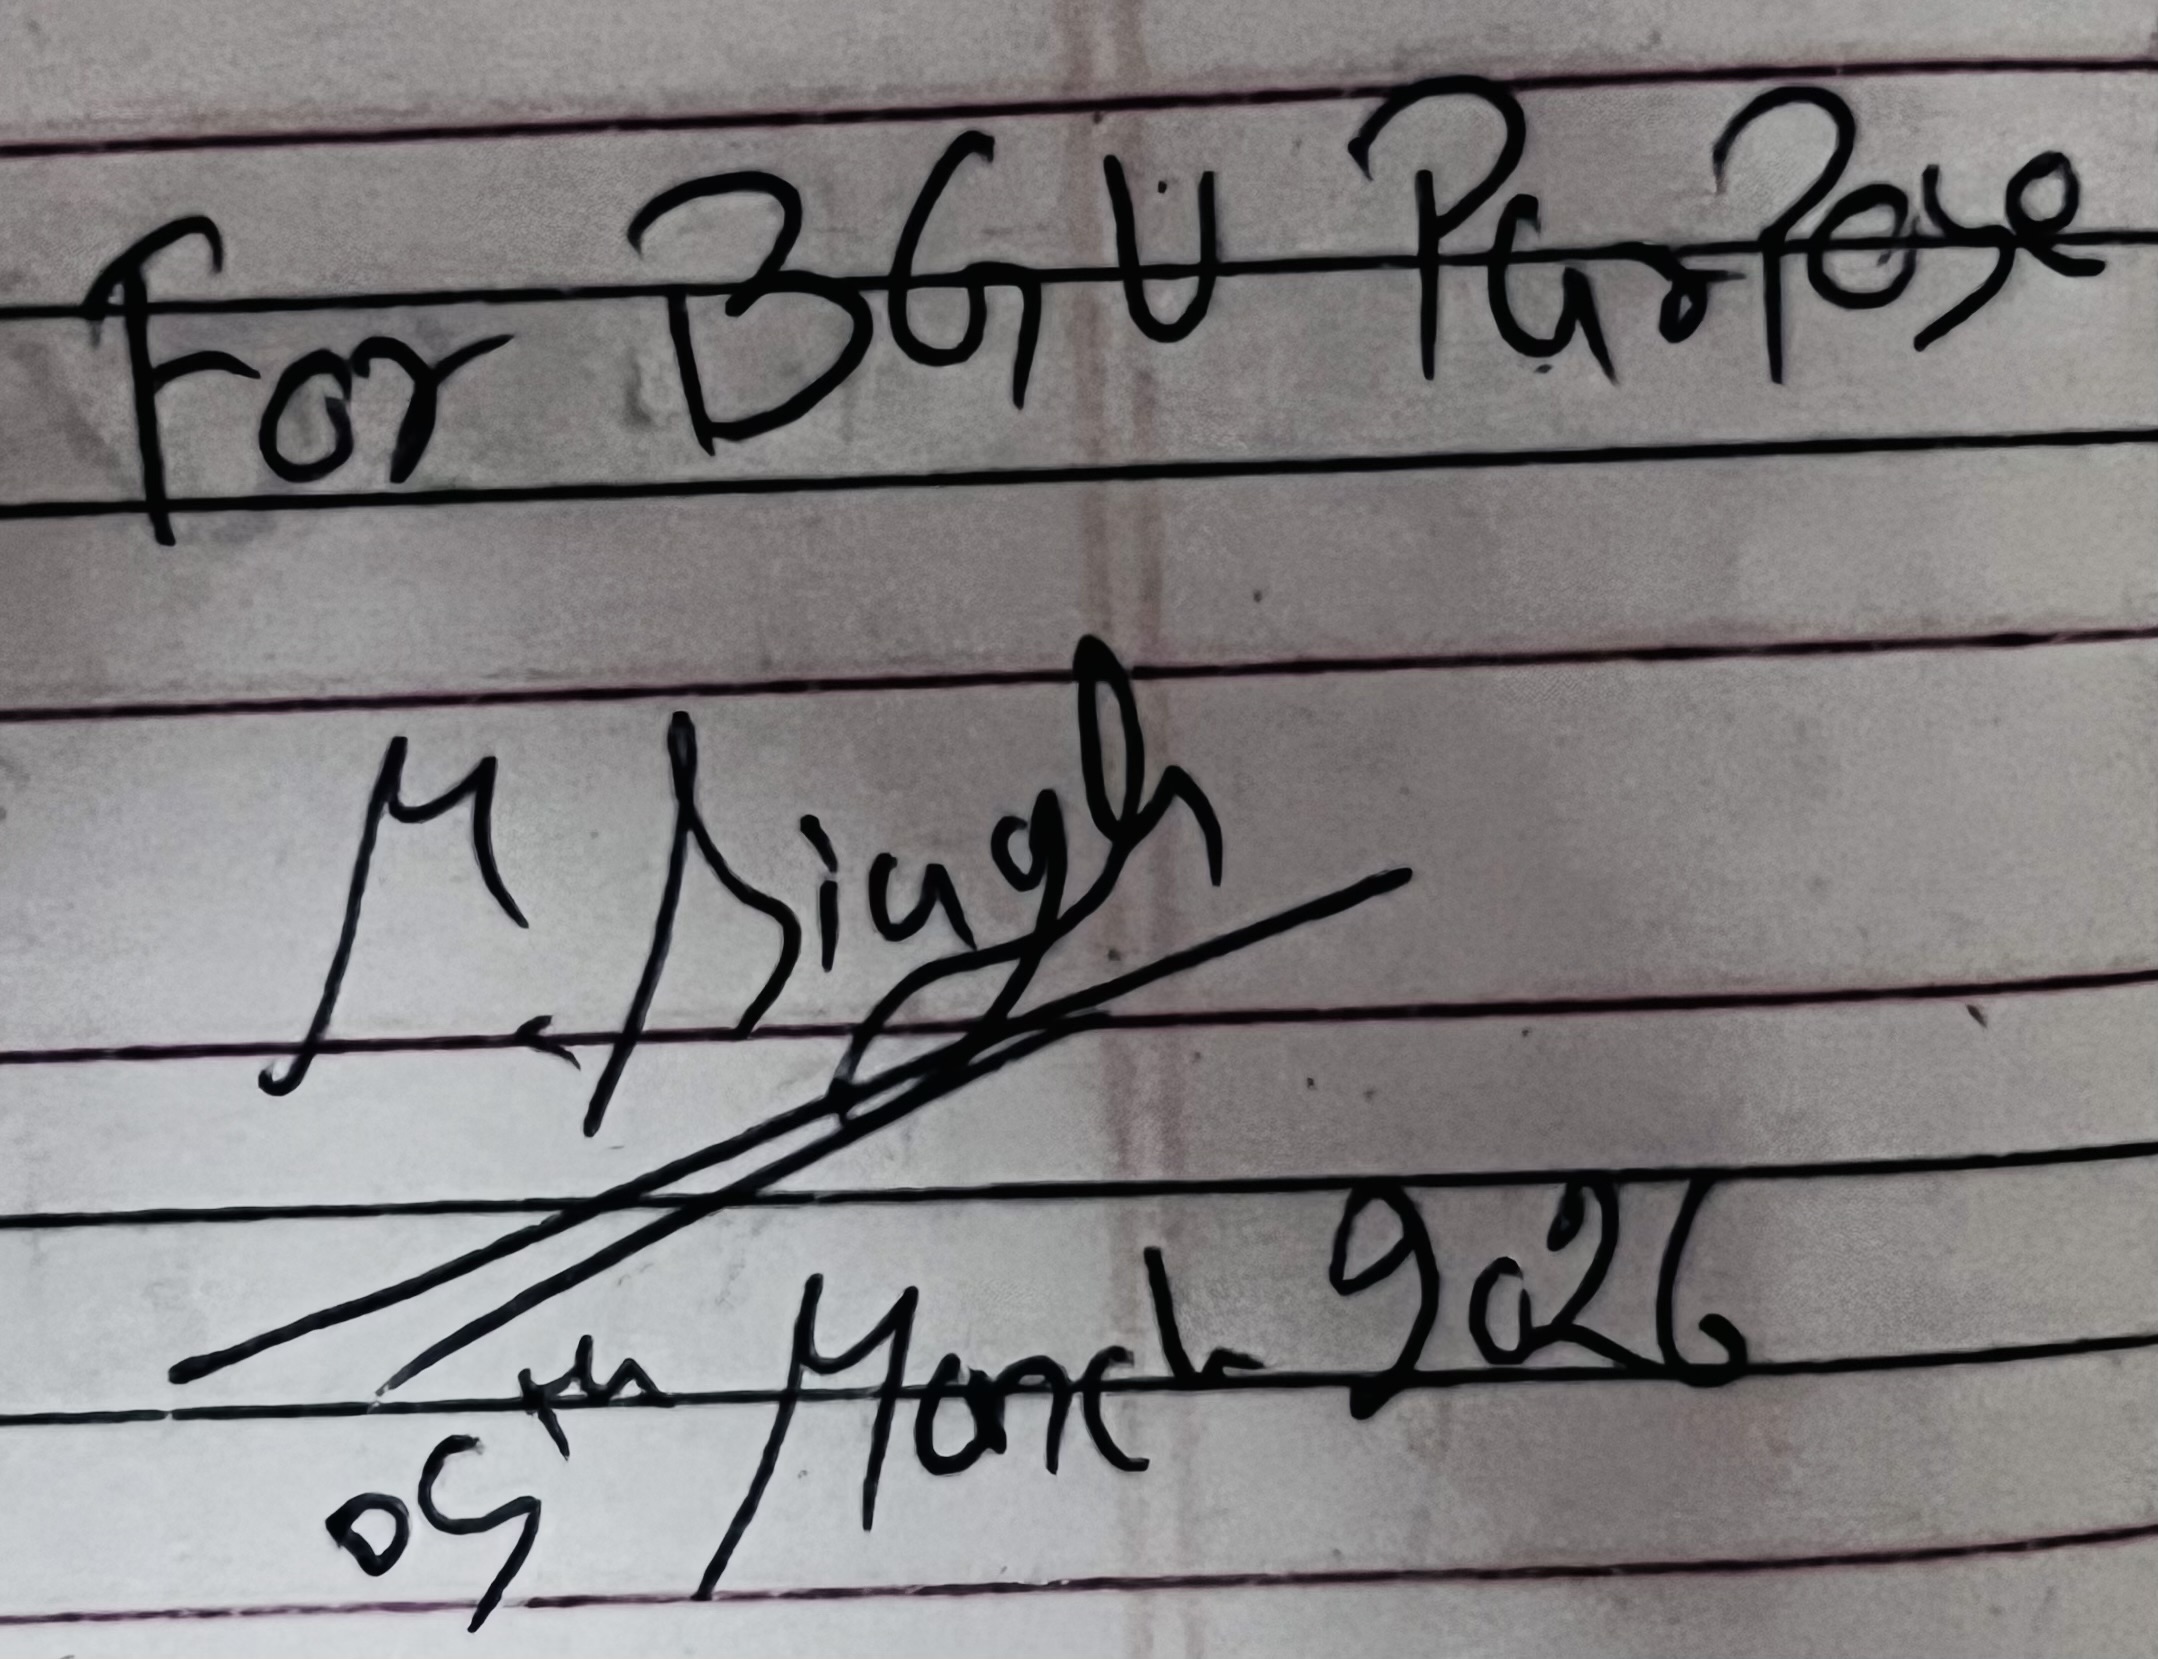 For BGU PurPose
M. Singh
05th March 2026